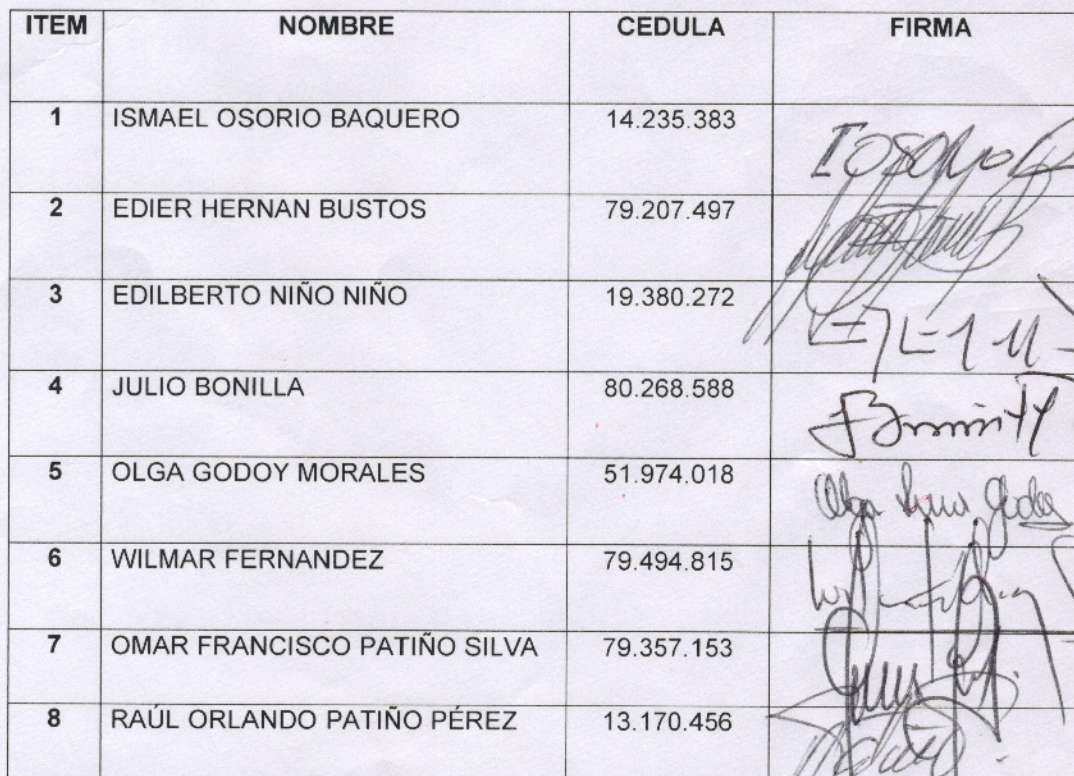 ITEM NOMBRE CEDULA FIRMA
1 ISMAEL OSORIO BAQUERO 14.235.383
2 EDIER HERNAN BUSTOS 79.207.497
3 EDILBERTO NIÑO NIÑO 19.380.272
4 JULIO BONILLA 80.268.588
5 OLGA GODOY MORALES 51.974.018
6 WILMAR FERNANDEZ 79.494.815
7 OMAR FRANCISCO PATIÑO SILVA 79.357.153
8 RAÚL ORLANDO PATIÑO PÉREZ 13.170.456